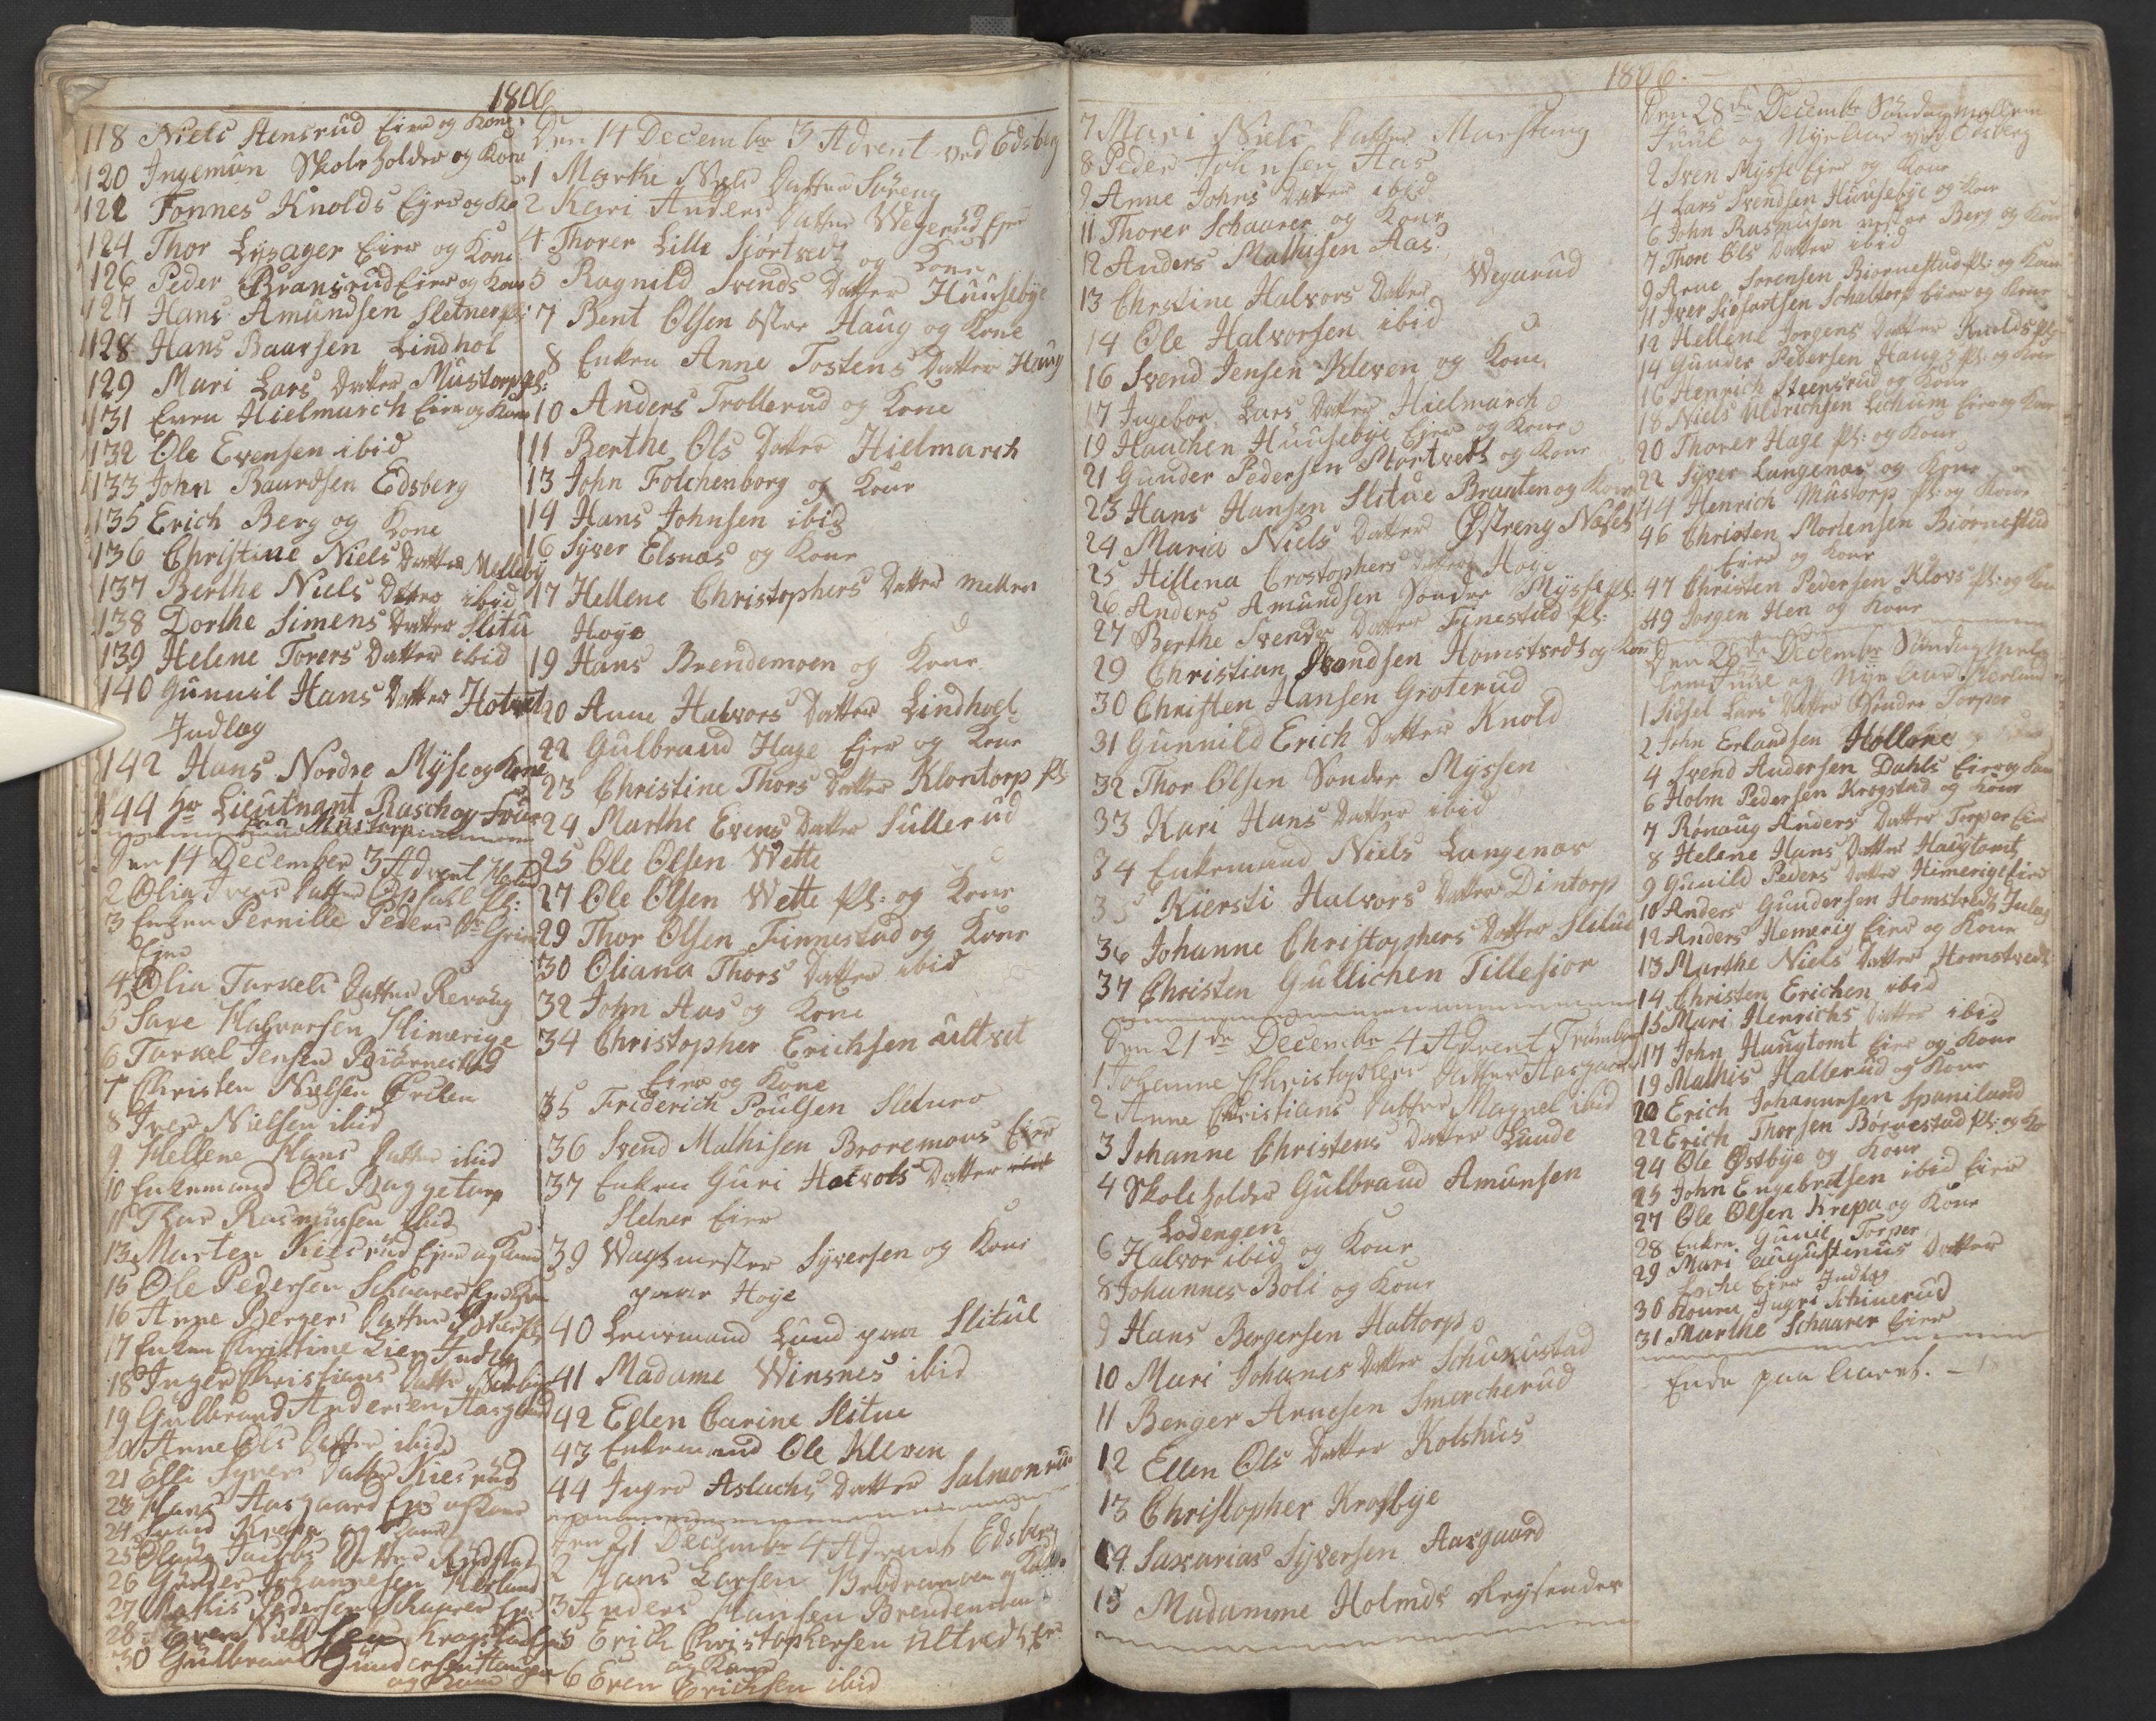 1806
118 Niels Stensrud Eier og Kone
120 Ingemun Skoleholder og Kone
122 Tonnes Knolds Eyer og Ko
124 Thor Lysager Eier og Kone
126 Peder Bransrud Eier og Kone
127 Hans Amundsen Sletner pl:
128 Hans Baarsen Lindhol
129 Mari Lars Datter Mustorp pl:
131 Even Hielmarch Eier og Kone
132 Ole Evensen ibid
133 John Baardsen Edsberg
135 Erich Berg og Kone
136 Christine Niels Datter Melleby
137 Berthe Niels Datter ibid
138 Dorthe Simens Datter Slitu
139 Helene Torers Datter ibid
140 Gunnil Hans Datter Hotvet
Indlæg
142 Hans Nordre Myse og Kone
144 Hr Lieutnant Rasch og Frue
paa Mustorp
Den 14 December 3 Advent
2 Olia Ivers Datter Opsahl pl:
3 Enken Pernille Peders Dr
Eyer
4 Olia Tarkels Datter Revoug
5 Save Halvorsen Himerige
6 Tarkel Jensen Biørnestad
7 Christen Nielsen Grilen
8 Iver Nielsen ibid
9 Hellene Hans Datter ibid
10 Enkemand Ole Baggetorp
11 Thor Rasmusen ibid
13 Morten Kiesrud Eyer og Kone
15 Ole Pedersen Schaarer
16 Anne Bergers Datter
17 Enken Christine Lier Indl
18 Inger Christians Datter
19 Gulbrand Andersen Aasgaard
20 Anne Ols Datter ibid
21 Elli Syvers Datter Kiesrud
23 Hans Aasgaard Eyer og Kone
24 Krepa og Kone
25 Jacobs Datter Rudstad
26 Gunder Johannesen Kierland
27 Mathis Pedersen Schaarer
28 Even Nielsen Krogstad
30 Gulbrand Gundersen Haugen
og Kone
Den 14 Decembr 3 Advent ved Edsberg
1 Marthe Niels Datter Søreng
2 Kari Anders Datter Wegerud Eyer
4 Thorer Lille Siørtvedt og Kone
5 Ragnild Svends Datter Huusebye
7 Bent Olsen østre Haug og Kone
8 Enken Anne Tostens Datter Haug
10 Anders Trollerud og Kone
11 Berthe Ols Datter Hielmarch
13 John Folchenborg og Kone
14 Hans Johnsen ibid
16 Syver Elsnæs og Kone
17 Hellene Christophers Datter mellem
Høye
19 Hans Brendemoen og Kone
20 Anne Halvors Datter Lindhoel
22 Gulbrand Hage Eier og Kone
23 Christine Thors Datter Klontorp pl:
24 Marthe Evens Datter Sullerud
25 Ole Olsen Wette
27 Ole Olsen Wette pl: og Kone
29 Thor Olsen Finnestad og Kone
30 Oliana Thors Datter ibid
32 John Aas og Kone
34 Christopher Erichsen Ultvet
Eier og Kone
35 Friderich Poulsen Sletner
36 Svend Mathisen Broremoens Eier
37 Enken Guri Halvors Datter ibid
Sletner Eier
39 Wagtmester Syversen og Kone
paa Høye
40 Lensmand Lund paa Slitue
41 Madame Winsnes ibid
42 Ellen Carine Slitue
43 Enkemand Ole Kleven
44 Inger Aslachs Datter Salmonrud
Den 21 Decembr 4 Advent Edsberg
2 Hans Larsen Brødremoen og Kone
3 Anders Hansen Brendemoen
5 Erich Christophersen Ultvedt
og Kone
6 Even Erichsen ibid
1806.
7 Mari Niels Datter Marstang
8 Peder Johnsen Aas
9 Anne Johns Datter ibid
11 Thorer Schaarer og Kone
12 Anders Mathisen Aas
13 Christine Halvors Datter Wegarud
14 Ole Halvorsen ibid
16 Svend Jensen Kleven og Kone
17 Ingebor Lars Datter Hielmarch
19 Hauchen Huusebye Eier og Kone
21 Gunder Pedersen Stortvedt og Kone
23 Hans Hansen Slitue Braaten og Kone
24 Maria Niels Datter Østreng Næset
25 Hillena Crostophers Datter Høye
26 Anders Amundsen Søndre Mysse pl:
27 Berthe Svends Datter Finestad pl:
29 Christian Svendsen Homstvedt og Kone
30 Christen Hansen Groterud
31 Gunnild Erich Datter Knold
32 Thor Olsen Søndre Myssen
33 Kari Hans Datter ibid
34 Enkemand Niels Langenæs
35 Kiersti Halvors Datter Dintorp
36 Johanne Christophers Datter Slitue
37 Christen Gullichen Tillesiør
Den 21de Decembr 4 Advent Trømborg
1 Johanne Christophers Datter Aasgaard
2 Anne Christians Datter Magnel ibid
3 Johanne Christens Datter Lunde
4 Skoleholder Gulbrand Amunsen
Lodengen
6 Halvor ibid og Kone
8 Johannes Boli og Kone
9 Hans Bergersen Hattorp
10 Mari Johanes Datter Schukustad
11 Berger Arnesen Smercherud
12 Ellen Ols Datter Kolshus
13 Christopher Krosbye
14 Saxarias Syversen Aasgaard
15 Madamme Holmds Reysender
Den 28de Decembr Søndag mellem
Juul og Nyeaar ved Edsberg
2 Sven Mysse Eyer og Kone
4 Lars Svendsen Huusebye og Kone
6 John Rasmusen vestre Berg og Kone
7 Thore Ols Datter ibid
9 Arne Sørensen Biørnestad pl: og Kone
11 Iver Siofartsen Schaltorp Eier og Kone
12 Hellene Jørgens Datter Knolds pl:
14 Gunder Pedersen Haugs pl: og Kone
16 Henrich Steensrud og Kone
18 Niels Uldrichsen Lechum Eier og Kone
20 Thorer Hage pl: og Kone
22 Syver Langenæs og Kone
44 Henrich Mustorp pl: og Kone
46 Christen Mortensen Biørnestad
Eier og Kone
47 Christen Pedersen Klovs pl: og Kone
49 Jørgen Hen og Kone
Den 28de Decembr Søndag mel
lem Juul og Nyeaar Kierland
1 Sidsel Lars Datter Søndre Torper
2 John Erlandsen Hollene
4 Svend Andersen Dahls Eier og Kone
6 Holm Pedersen Krogstad og Kone
7 Rønaug Anders Datter Torper Eier
8 Helene Hans Datter Haugtomt
9 Gunild Peders Datter Himerige Eier
10 Anders Gundersen Homstvedt Inlæg
12 Anders Hemerig Eier og Kone
13 Marthe Niels Datter Homstvedt
14 Christen Erichen ibid
15 Mari Henrichs Datter ibid
17 John Haugtomt Eier og Kone
19 Mathis Hallerud og Kone
20 Erich Johannesen Spaniland
22 Erich Thorsen Børnestad pl: og Ko
24 Ole Østbye og Kone
25 John Engebretsen ibid Eier
27 Ole Olsen Krepa og Kone
28 Enken Gunil Torper
29 Mari Augustinus Datter
Eier Indlæg
30 Konen Ingri Schinerud
31 Marthe Schaarer Eier
Ende paa Aaret.